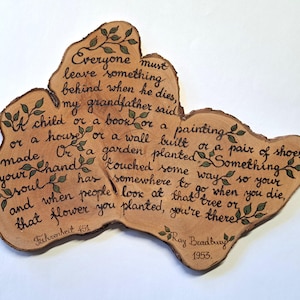 Everyone must
leave something
behind when he dies,
my grandfather said.
A child or a book or a painting
or a house or a wall built or a pair of shoes
made. Or a garden planted. Something
your hand touched some way so your
soul has somewhere to go when you die,
and when people look at that tree or
that flower you planted, you're there.
Fahrenheit 451
Ray Bradbury
1953.